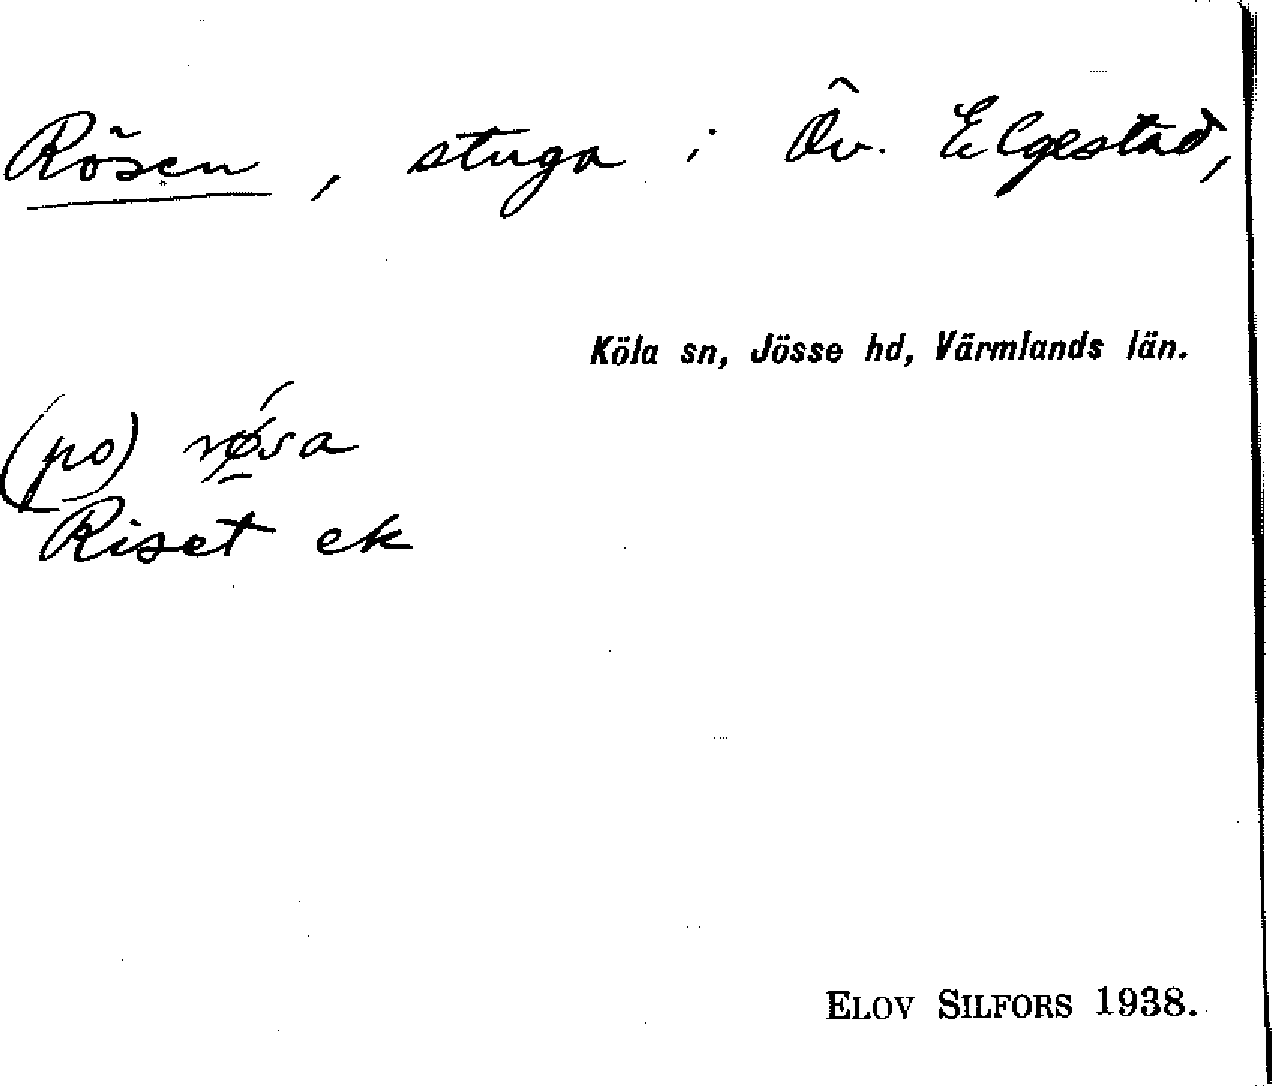 Rösen, stuga i Öv. Elgestad,
Köla sn, Jösse hd, Värmlands län.
(po) røsa
Riset ek
ELOV SILFORS 1938.